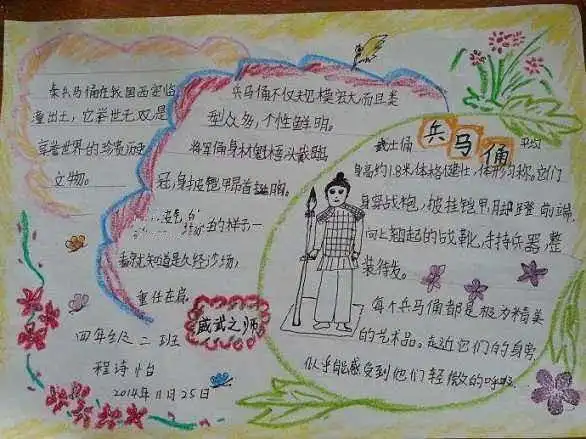 秦兵马俑在我国西安临
潼出土，它举世无双是
享誉世界的珍贵历史
文物。
兵马俑不仅规模宏大而且类
型众多，个性鲜明。
将军俑身材魁梧头戴鹖
冠，身披铠甲昂首挺胸。
的样子一
看就知道是久经沙场，
重任在肩。
威武之师
四年级二班
程诗怡
2014年11月25日
兵马俑
武士俑 平均
身高约1.8米体格健壮，体形匀称。它们
身穿战袍，披挂铠甲，脚蹬前端
向上翘起的战靴，手持兵器，整
装待发。
每个兵马俑都是极为精美
的艺术品。走近它们的身旁
似乎能感受到他们轻微的呼吸